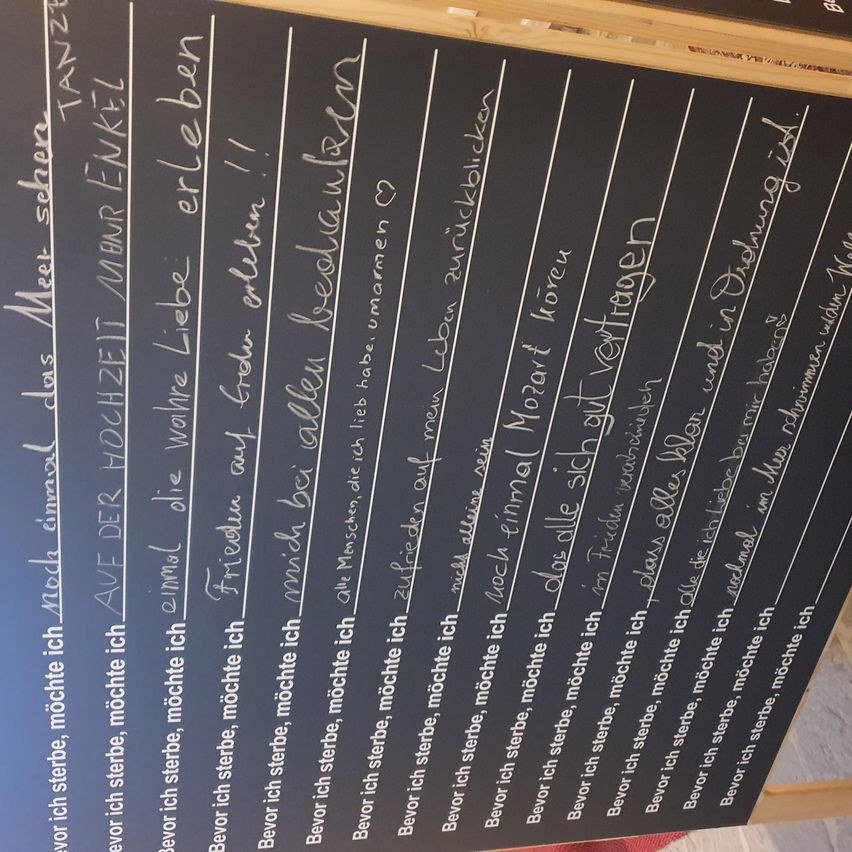 evor ich sterbe, möchte ich noch einmal das Meer sehen
evor ich sterbe, möchte ich AUF DER HOCHZEIT MEINR ENKEL TANZE
Bevor ich sterbe, möchte ich einmal die wahre Liebe erleben
Bevor ich sterbe, möchte ich Frieden auf Erden erleben!!
Bevor ich sterbe, möchte ich mich bei allen bedanken
Bevor ich sterbe, möchte ich alle Menschen, die ich lieb habe, umarmen ♡
Bevor ich sterbe, möchte ich zufrieden auf mein Leben zurückblicken
Bevor ich sterbe, möchte ich nicht alleine sein
Bevor ich sterbe, möchte ich noch einmal Mozart hören
Bevor ich sterbe, möchte ich das alle sich gut vertragen
Bevor ich sterbe, möchte ich im Frieden verabschieden
Bevor ich sterbe, möchte ich, dass alles klar und in Ordnung ist.
Bevor ich sterbe, möchte ich alle die ich liebe bei mir haben ♡
Bevor ich sterbe, möchte ich nochmal im Meer schwimmen
Bevor ich sterbe, möchte ich
Bevor ich sterbe, möchte ich